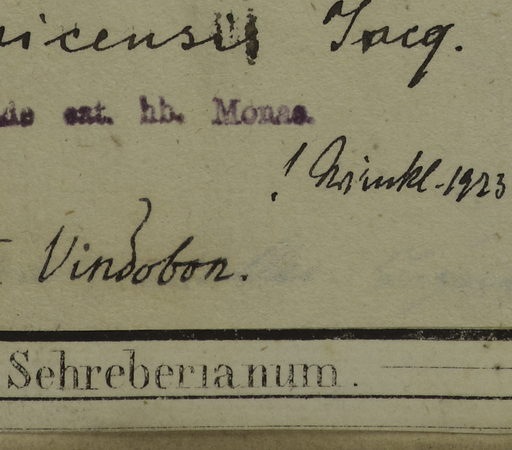 icensis Jacq.
de eat. hb. Monas.
! Winkl. 1923
Vindobon.
Schreberianum.